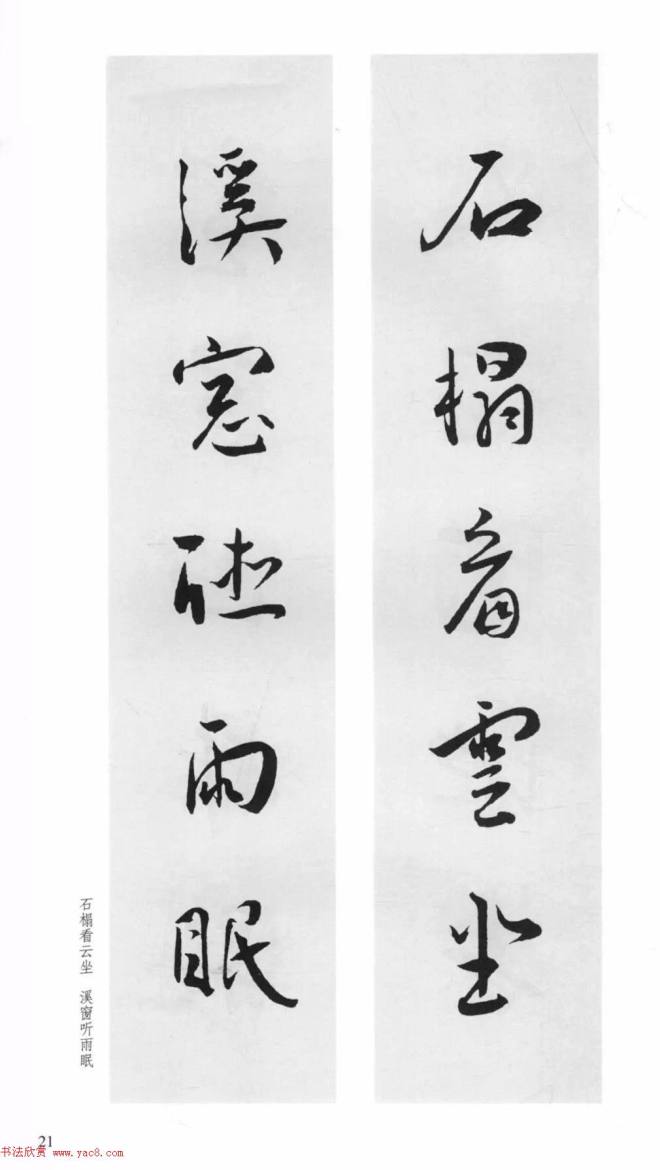 石榻看雲坐
溪窓聽雨眠
石榻看云坐 溪窗听雨眠
21
书法欣赏 www.yac8.com